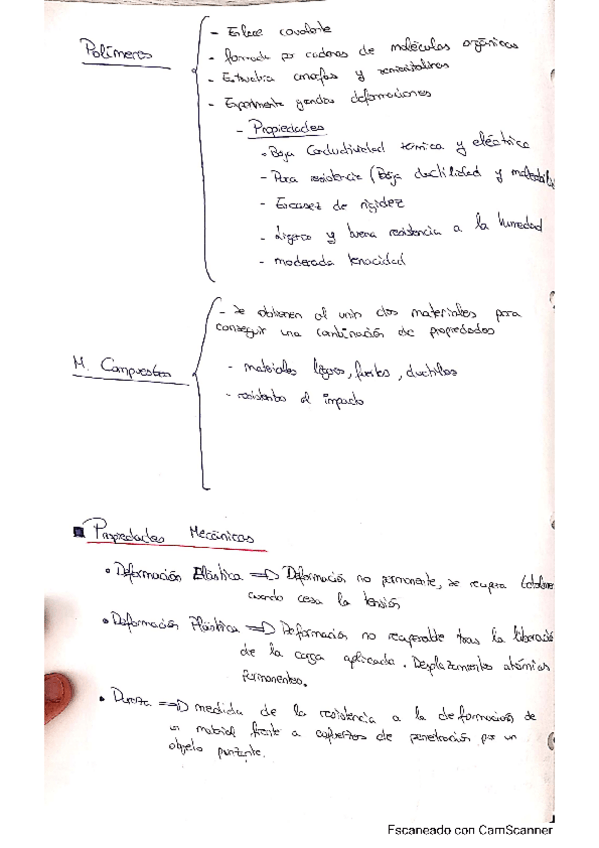 Polímeros
- Enlace covalente
- formada por cadenas de moléculas orgánicas
- Estructura amorfas y semicristalinas
- Experimenta grandes deformaciones
- Propiedades
• Baja conductividad térmica y eléctrica
- Poca resistencia (Baja ductilidad y
- Escasez de rigidez
- Ligero y buena resistencia a la humedad
- moderada tenacidad
M. Compuestos
- Se obtienen al unir dos materiales para
conseguir una combinación de propiedades
- materiales ligeros, fuertes, ductiles
- resistentes al impacto
Propiedades Mecánicas
• Deformación Elástica => Deformación no permanente, se
cuando cesa la tensión
• Deformación Plástica => Deformación no recuperable tras la
de la carga aplicada. Desplazamientos atómicos
permanentes.
• Dureza => medida de la resistencia a la deformación de
un material frente a de penetración por un
objeto punzante.
Escaneado con CamScanner